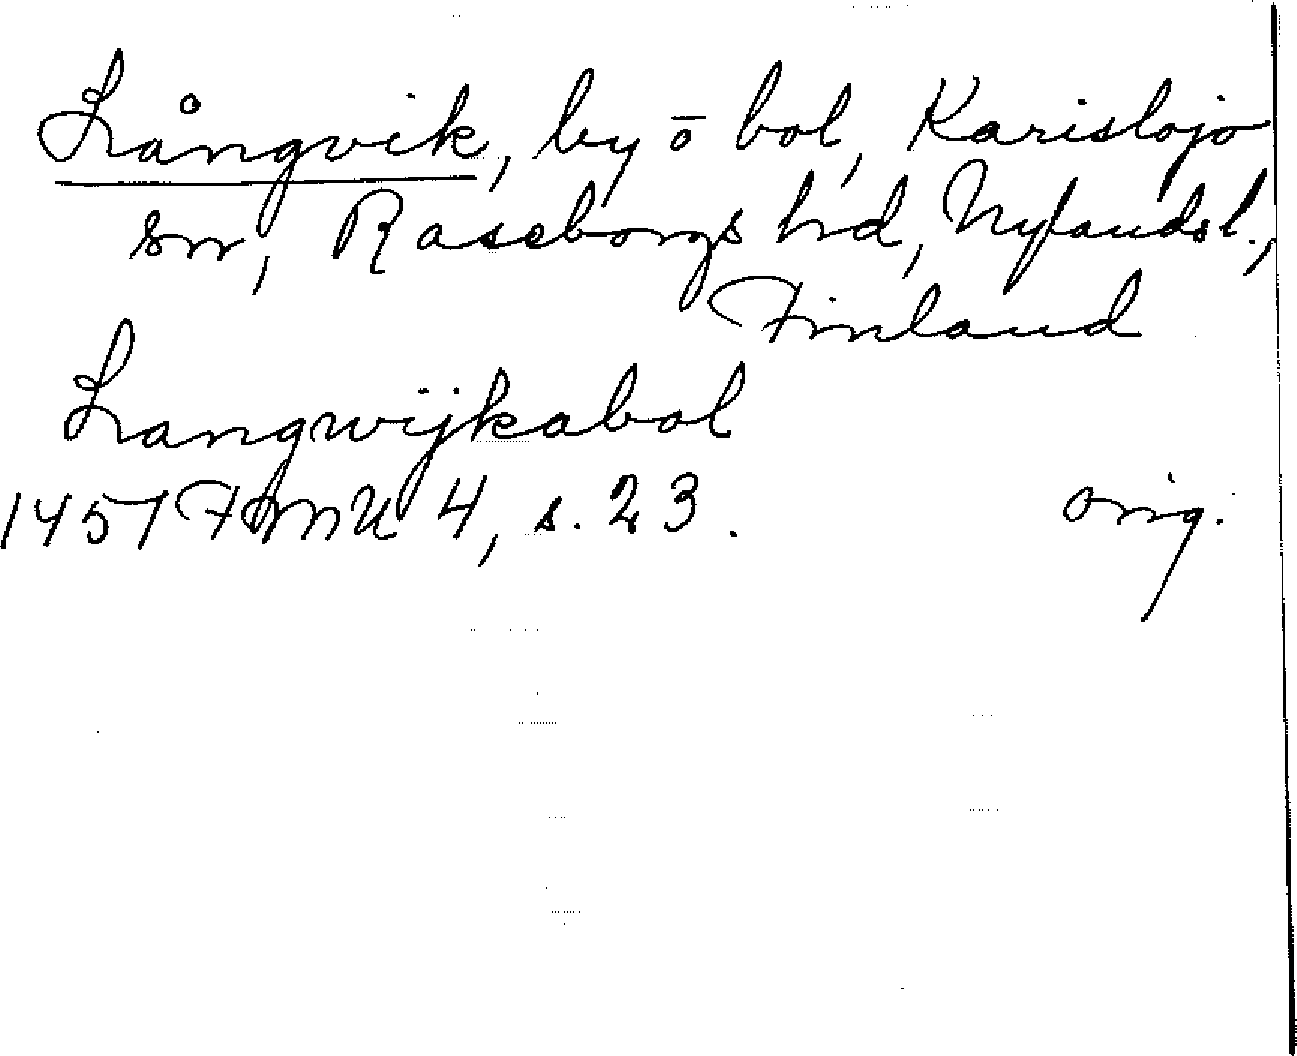 Långvik, by ō bol, Karislojo
sn, Raseborgs hd, Nylandsl.,
Finland
Langwijkabol
1457 FMU 4, s. 23. orig.